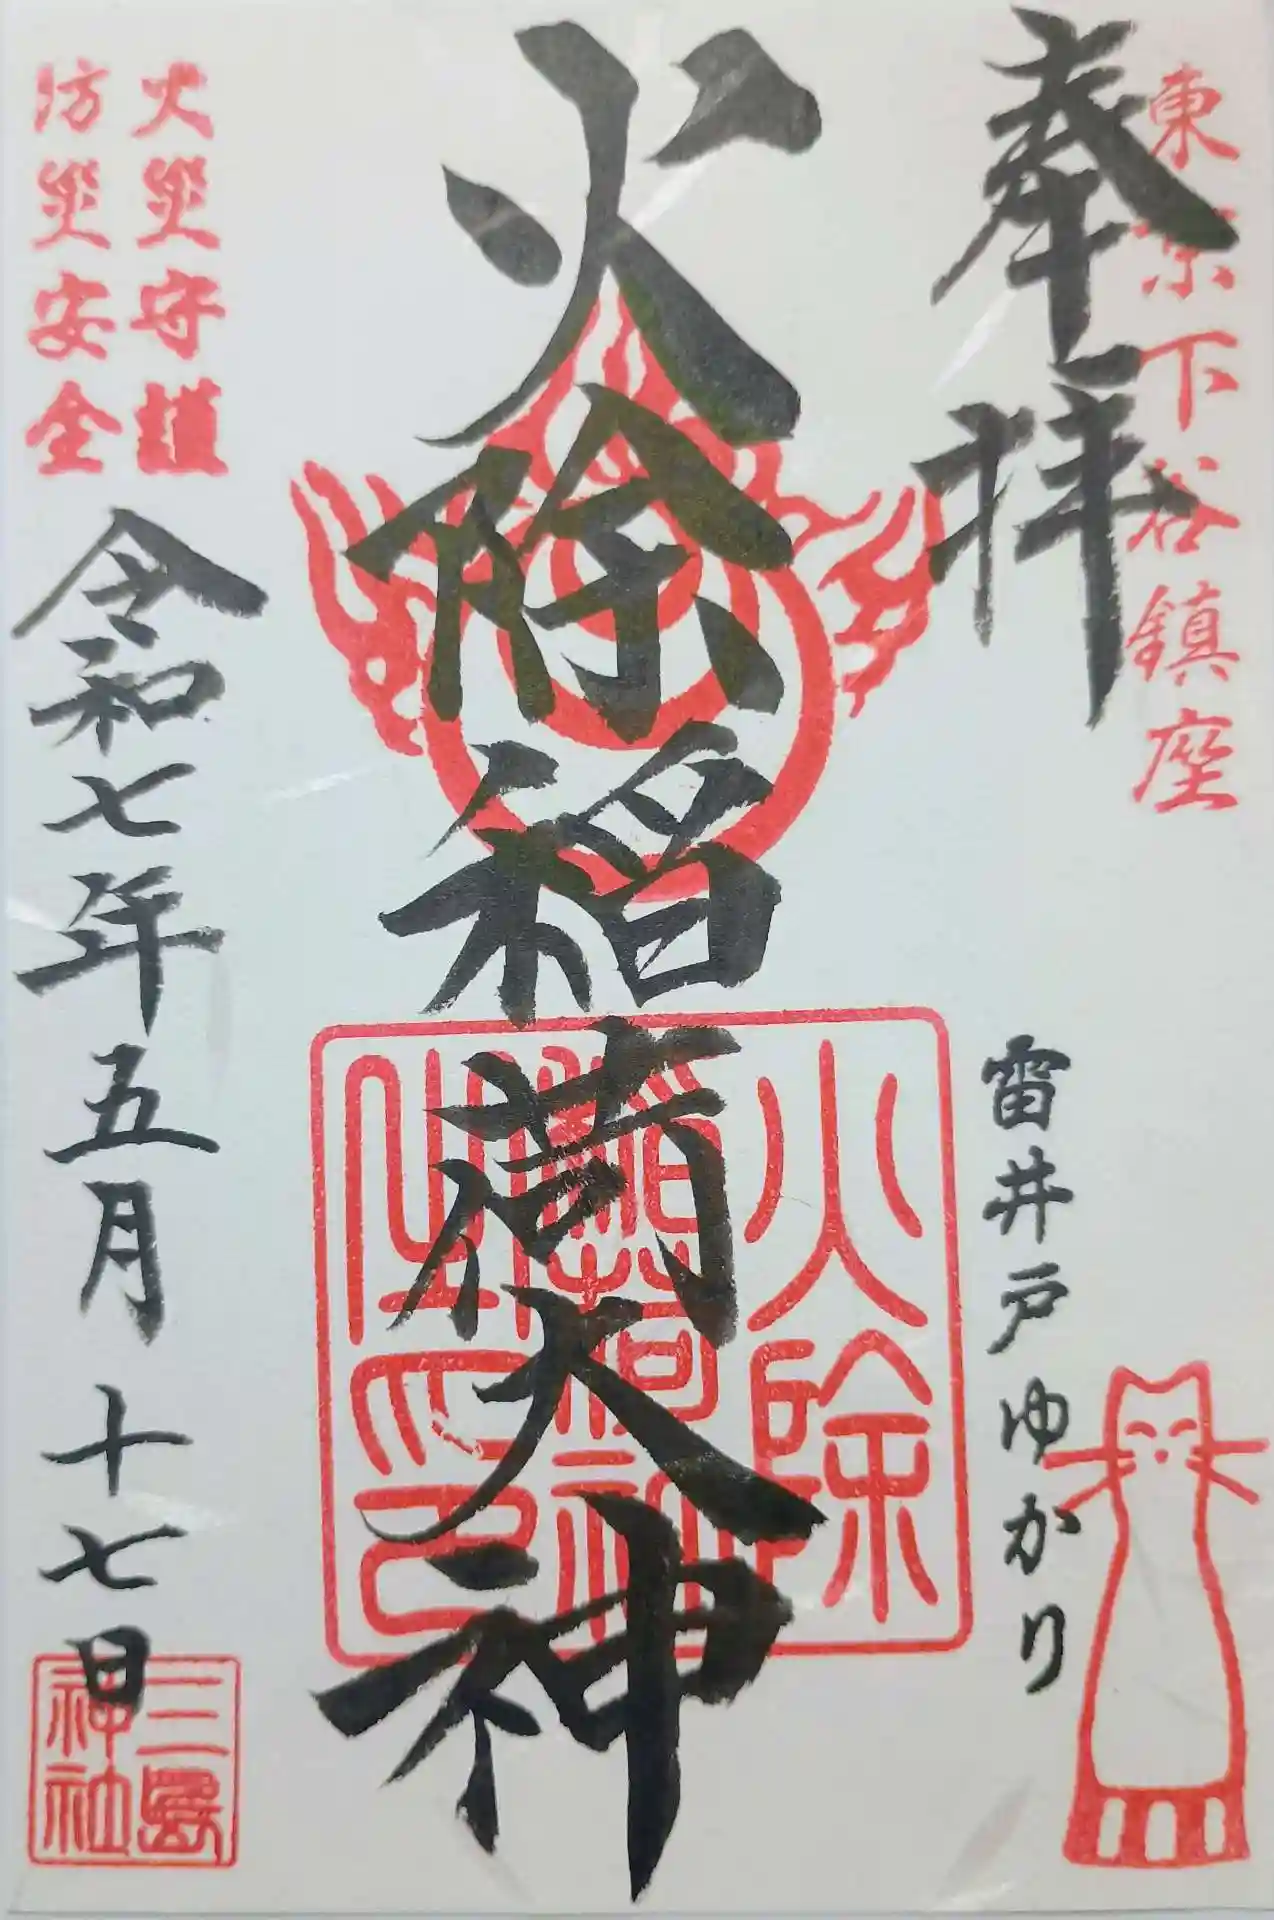 東京下谷鎮座
奉拝
雷井戸ゆかり
火除稲荷大神
火除
稲荷神
之印
火災守護
防災安全
令和七年五月十七日
三島
神社